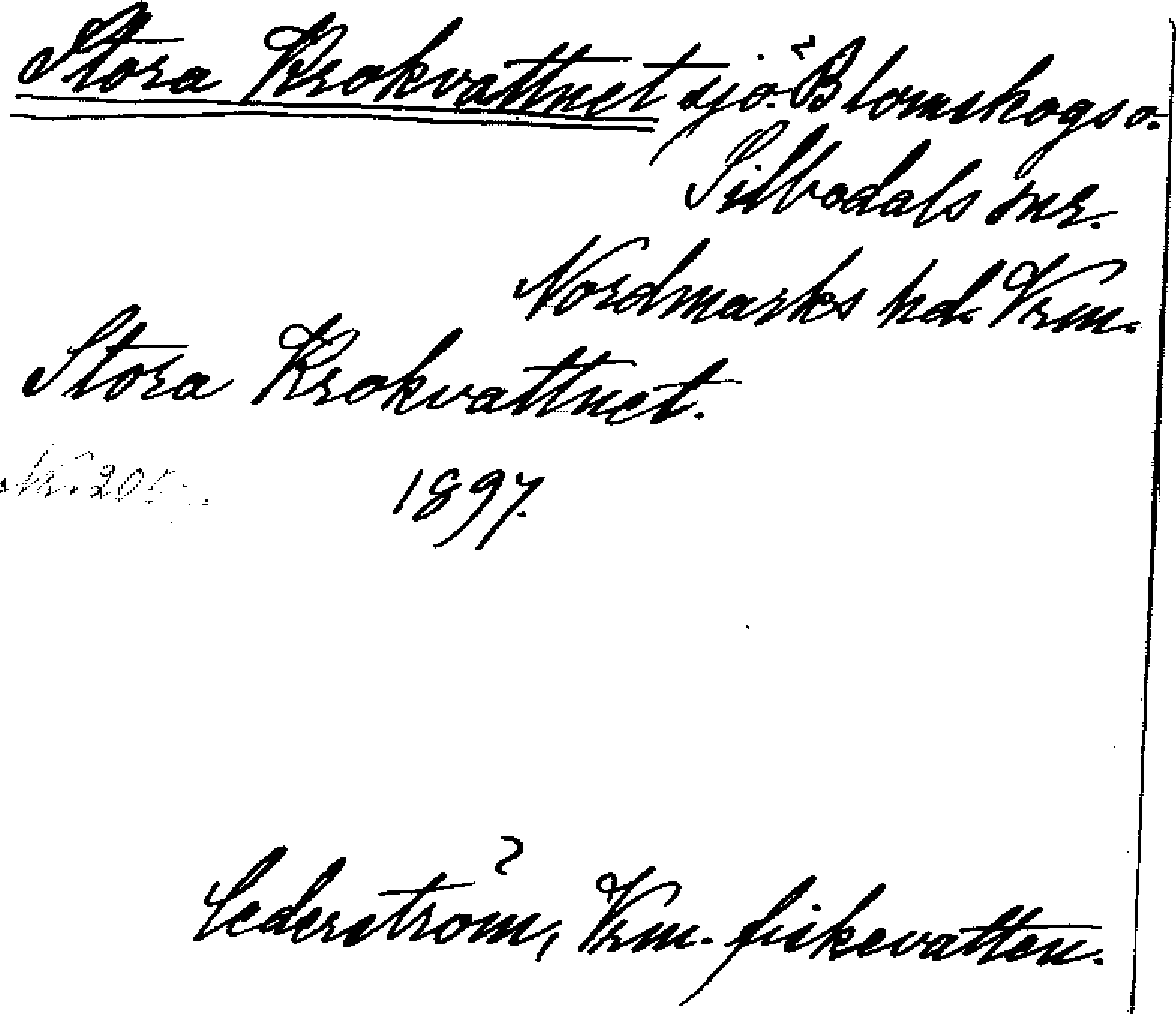 Stora Krokvattnet sjö. Blomskogs o.
Silbodals snr.
Nordmarks hd. Vrm.
Stora Krokvattnet.
1897.
Cederström, Vrm. fiskevatten.